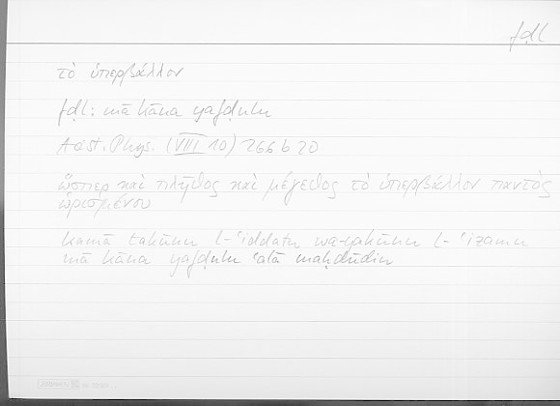 fḍl
τὸ ὑπερβάλλον
fḍl: mā kāna yafḍulu
Arist. Phys. (VIII 10) 266 b 20
ὥσπερ καὶ πλῆθος καὶ μέγεθος τὸ ὑπερβάλλον παντὸς
ὡρισμένου
kamā takūnu l-ʿiddatu wa-yakūnu l-ʿiẓamu
mā kāna yafḍulu ʿalā maḥdūdin